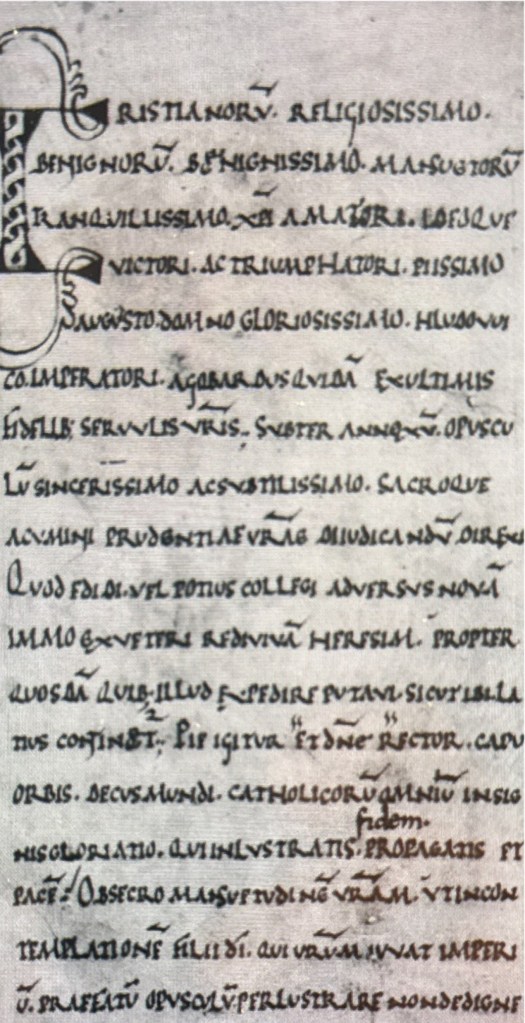 XRISTIANORŪ. RELIGIOSISSIMO.
BENIGNORŪ. BENIGNISSIMO. MANSUETORŪ
TRANQUILLISSIMO. XP̄I AMATORI.
VICTORI. AC TRIUMPHATORI. PIISSIMO
AUGUSTO. DOMNO GLORIOSISSIMO. HLUDOUUI
CO. IMPERATORI. AGOBARDUS QUIDĀ EX ULTIMIS
FIDELIB; SERUULIS UR̄IS. SUBTER ANNEXŪ. OPUSCU
LŪ SINCERISSIMO AC SUBTILISSIMO. SACROQUE
ACUMINI PRUDENTIAE UR̄AE DIIUDICANDŪ. DIREXI
QUOD EDIDI. UEL POTIUS COLLEGI ADUERSUS NOUĀ
IMMO EX UETERI REDIUIUĀ HERESIM. PROPTER
QUOSDĀ QUIB; ILLUD EXPEDIRE PUTAUI. SICUT IBI LA
TIUS CONTINET. PIE IGITUR ET DN̄E RECTOR. CAPU
ORBIS. DECUS MUNDI. CATHOLICORŪ OMNIŪ INSIG
fidem.
NIS GLORIATIO. QUI INLUSTRATIS. PROPAGATIS ET
PACĒ. OBSECRO MANSUETUDINĒ UR̄AM. UT IN CON
TEMPLATIONĒ FILII DĪ. QUI UR̄UM IUUAT IMPERI
Ū. PRAEFATŪ OPUSCULŪ PERLUSTRARE NON DEDIGNE